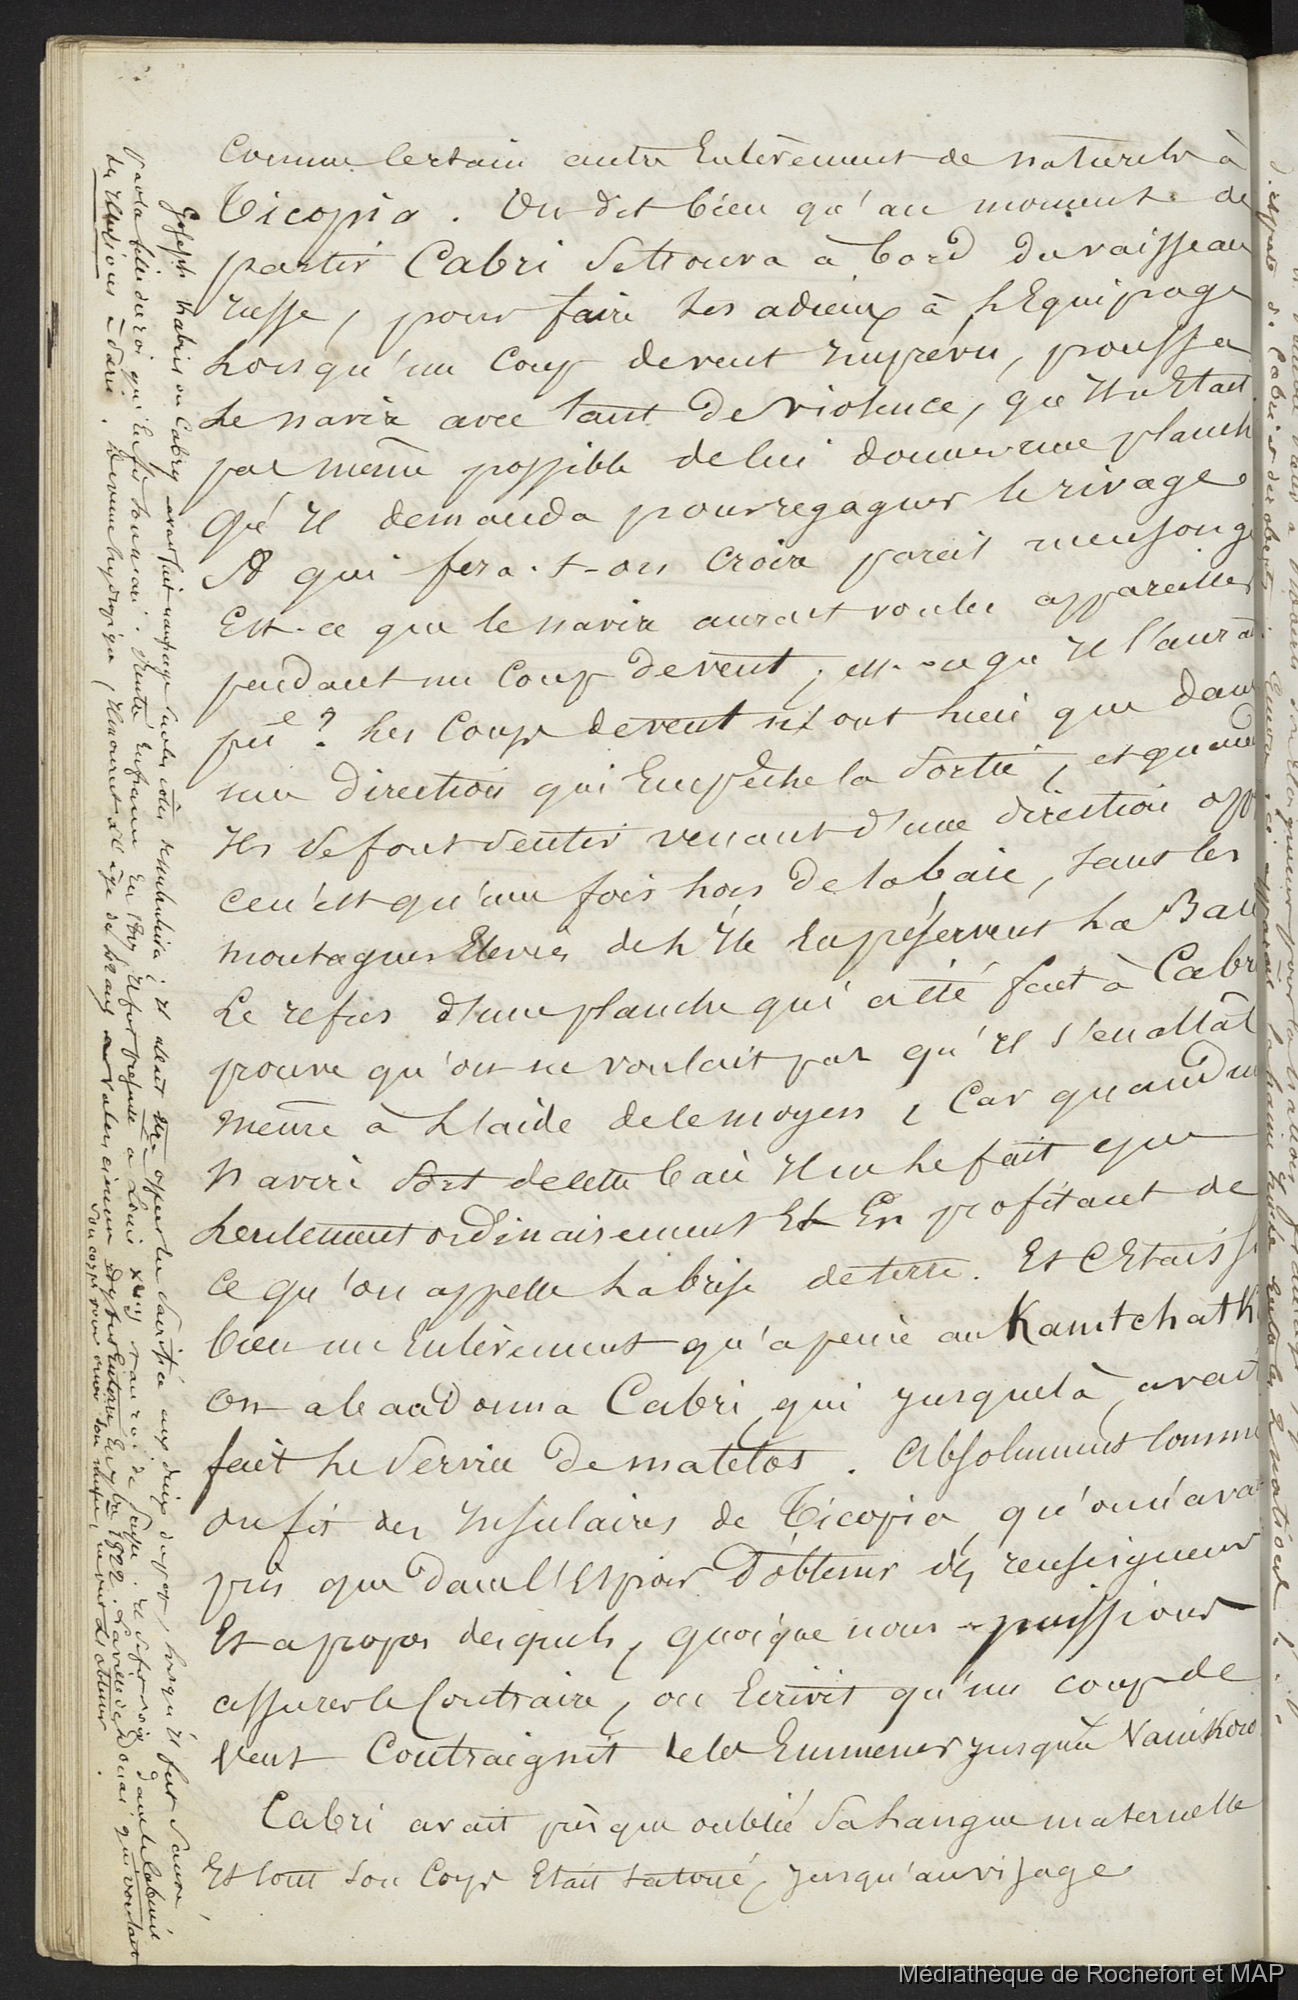 Comme certain autre Enlèvement de naturels à
Ticopia. On dit bien qu'au moment de
partir Cabri se trouva à bord du vaisseau
russe, pour faire ses adieux à l'Equipage
Lorsqu'un coup de vent imprévu, poussa
Le navire avec tant de violence, qu'il n'Etait
pas même possible de lui donner une planch
qu'il demanda pour regagner le rivage.
A qui fera-t-on croire pareil mensong
Est-ce que le navire aurait voulu appareiller
pendant un coup de vent, est-ce qu'il l'aurait
pu? Les coups de vent n'y ont lieu que dans
une direction qui Empêche la sortie, et quand
Ils se font sentir venant d'une direction opp
ce n'est qu'une fois hors de la baie, tant les
montagnes Elevées de l'Ile En préservent La Baie
Le refus d'une planche qui a été fait à Cabri
prouve qu'on ne voulait pas qu'il s'en allât
même à l'aide de ce moyen, car quand un
navire sort de cette baie il ne le fait que
seulement ordinairement Et En profitant de
ce qu'on appelle la brise de terre. Et c'Etait si
bien un Enlèvement qu'a peine au Kamtchatk
on abaadonna Cabri, qui jusque là, avait
fait le service de matelos. Absolument comme
on fit des Insulaires de Ticopia, qu'on n'avait
pris que dans l'Espoir d'obtenir des renseignem
Et a propos desquels, quoique nous puissions
assurer le Contraire, on Ecrivit qu'un coup de
Vent Contraignit de les Emmener jusqu'à Vanikoro
Cabri avait presque oublié sa Langue maternelle
Et tout son Corps Etait tatoué, jusqu'au visage
Joseph Kabris ou Cabry avait fait naufrage sur les côtes de Nukahiva; il allait être offert en sacrifice aux dieux du pays, lorsqu'il fut sauvé
par la fille du roi qui En fit son mari. Rentré En france En 1817, il fut présenté à Louis XVIII & au roi de Prusse. Il se fit voir dans le cabinet
des illusions à Paris. Devenu hydropique, il mourut à l'âge de 42 ans à Valenciennes & y fut Enterré En 7bre 1822. La ville de Douai qui voulait
son corps pour orner son musée, ne put L'obtenir.